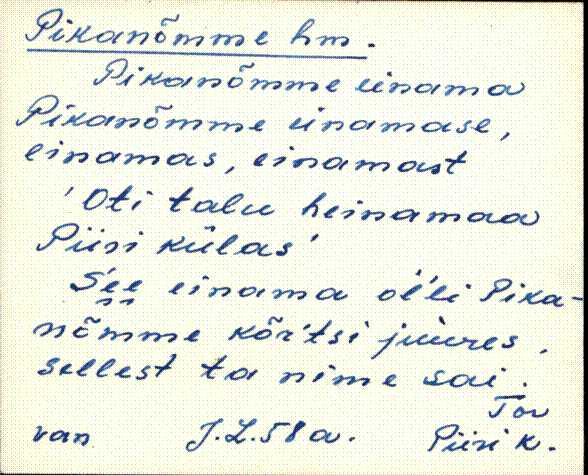 Pikanõmme hm.
Pikanõmme einama
Pikanõmme einamase,
einamas, einamast
'Oti talu heinamaa
Piisi külas'
S'ee einama ol'li Pika-
nõmme kõr'tsi juures,
sellest ta nime sai.
Tor
van J.L.58 a. Piisi k.